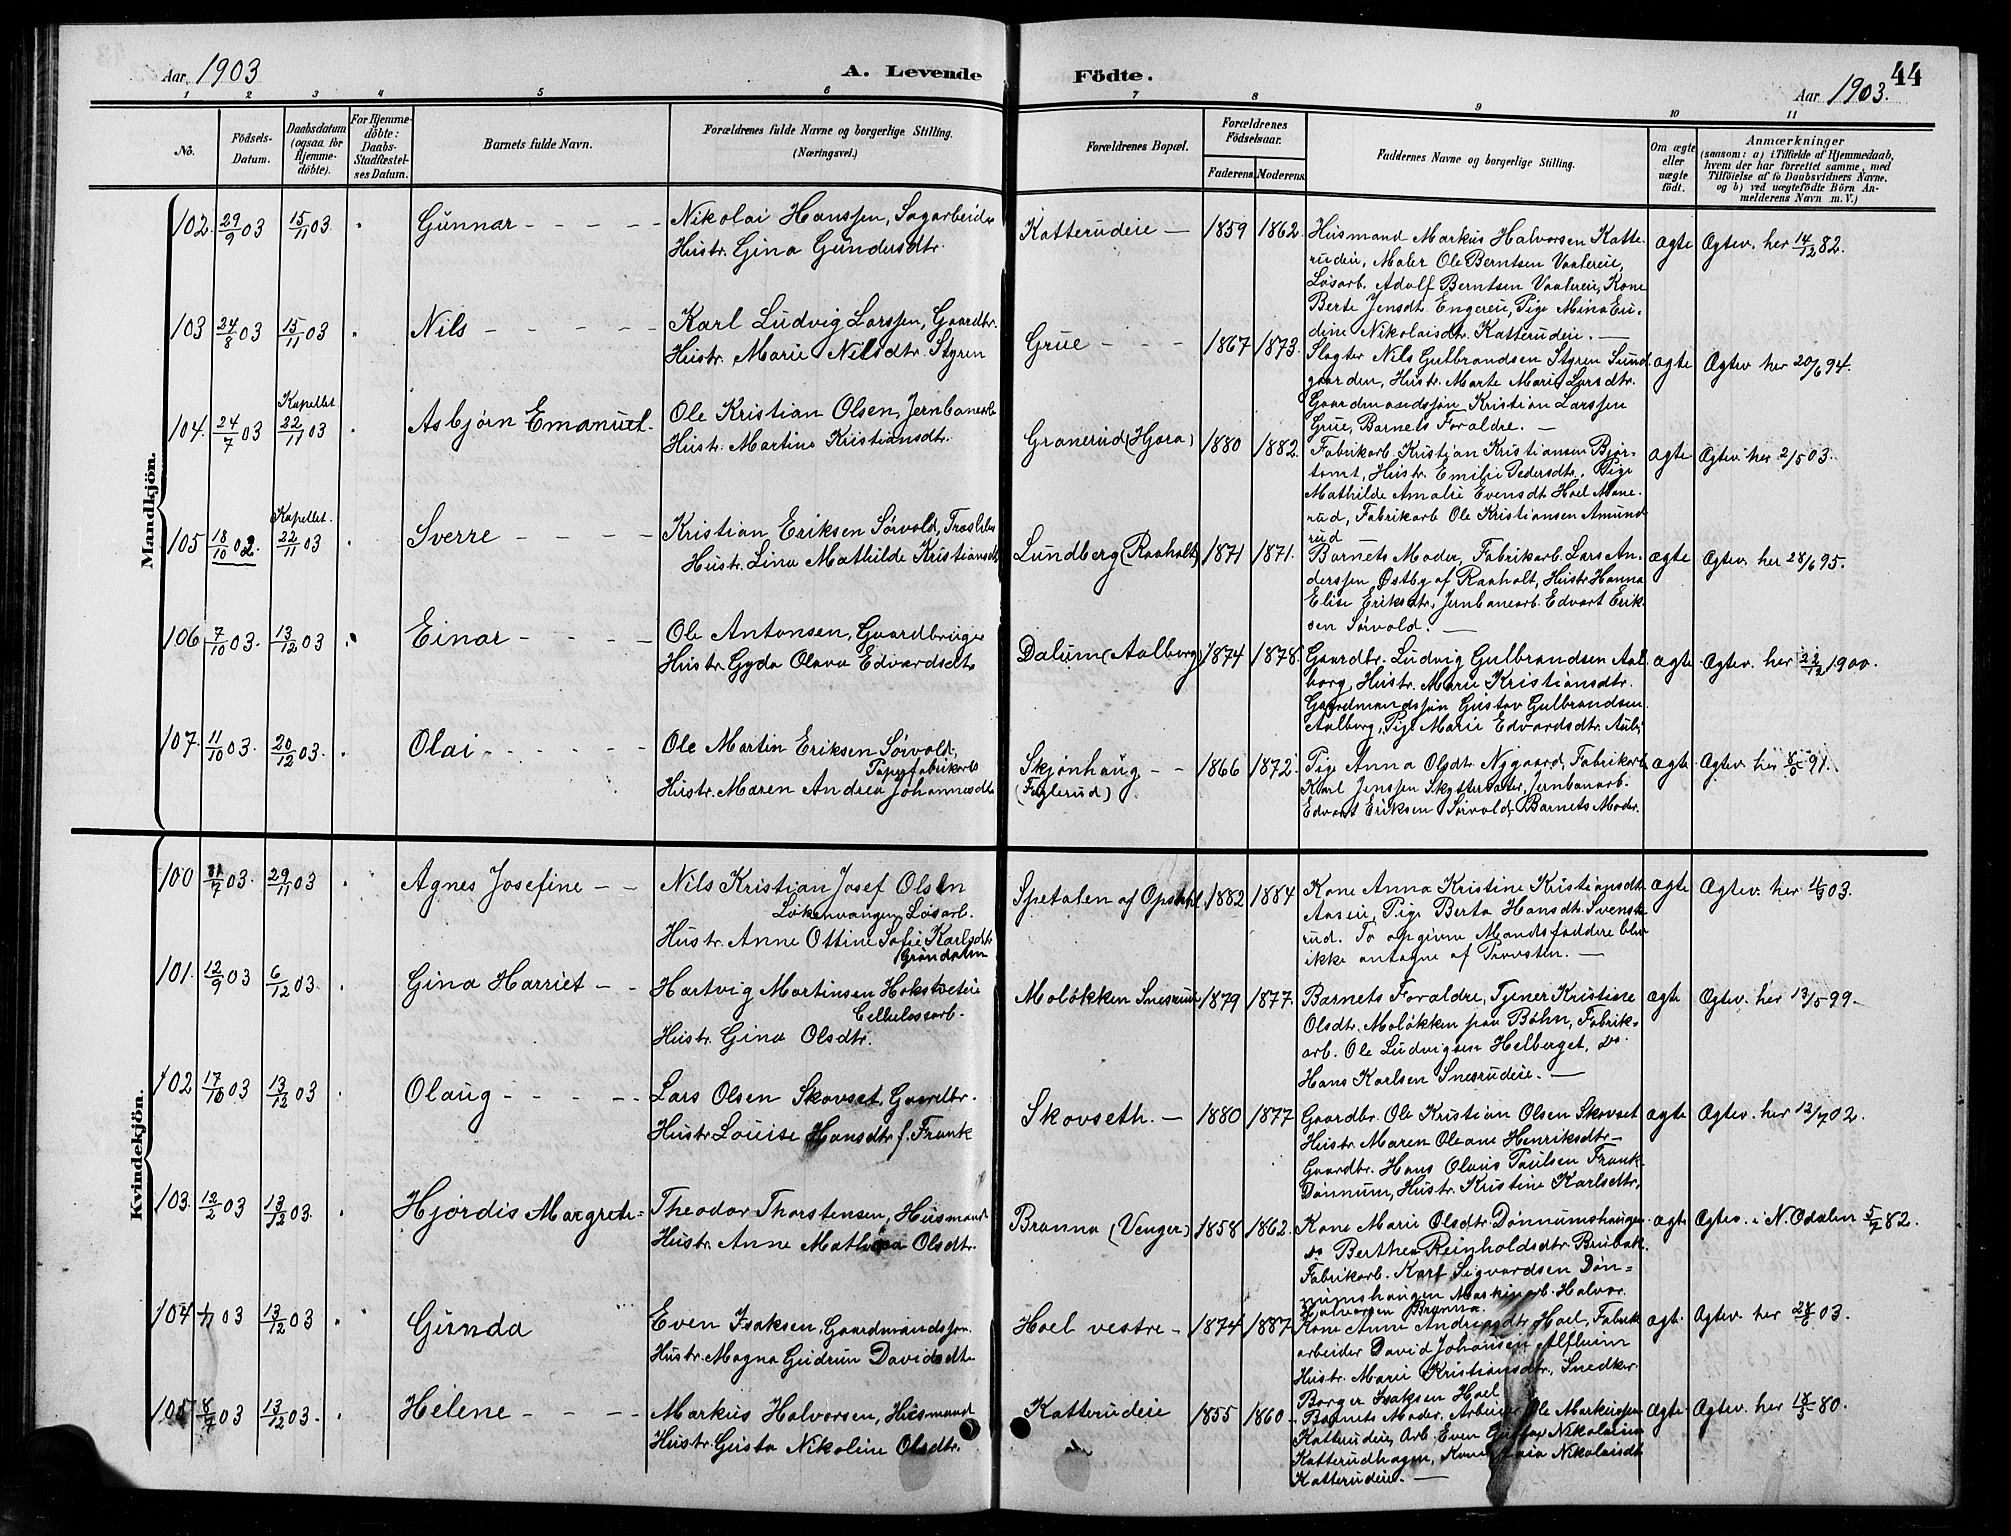 Aar 1903
A. Levende Födte.
44
Aar 1903.
1 2 3 4 5 6 7 8 9 10 11
No.
Födsels-
Datum.
Daabsdatum
(ogsaa for
Hjemme-
döbte).
For Hjemme-
döbte:
Daabs-
Stadfæstel-
ses Datum.
Barnets fulde Navn.
Forældrenes fulde Navne og borgerlige Stilling.
(Næringsvei.)
Forældrenes Bopæl.
Forældrenes
Födselsaar.
Faderens. Moderens.
Faddernes Navne og borgerlige Stilling.
Om ægte
eller
uægte
født.
Anmærkninger
(saasom: a) i Tilfælde af Hjemmedaab,
hvem der har forrettet samme, med
Tilföielse af to Daabsvidners Navne.
og b) ved uægtefödte Börn An-
melderens Navn m. V.)
Mandkjön.
102. 29/9 03 15/11 03. Gunnar
Nikolai Hanssen, Sagarbeider
Hustr. Gina Gundersdtr.
Katterudeie 1859 1862.
Husmand Markus Halvorsen Katte-
rudeie, Maler Ole Berntsen Vaatereie,
Løsarb. Adolf Berntsen Vaatereie, Kone
Berte Jensdtr. Engereie, Pige Mina Eu-
dine Nikolaisdtr. Katterudeie.
ægte Ægtev. her 14/12 82.
103 24/8 03 15/11 03 Nils
Karl Ludvig Larssen, Gaardbr.
Hustr. Marie Nilsdtr. Styren
Grue 1867 1873.
Slagter Nils Gulbrandsen Styren Sund
gaarden, Hustr. Marte Marie Larsdtr.
Gaardmandssøn Kristian Larssen
Grue, Barnets Forældre.
ægte Ægtev her 20/6 94.
104. 24/7 03 Kapellet 22/11 03 Asbjørn Emanuel
Ole Kristian Olsen, Jernbanearb
Hustr. Martine Kristiansdtr.
Granerud (Hjera) 1880 1882.
Fabrikarb. Kristian Kristiansen Bjør-
tomt, Hustr. Emilie Pedersdtr. Pige
Mathilde Amalie Evensdtr. Hoel Mane-
rud, Fabrikarb Ole Kristiansen Amund
rud
ægte Ægtev. her 2/5 03.
105 18/10 02. Kapellet. 22/11 03 Sverre
Kristian Eriksen Sørvold,
Hustr. Lina Mathilde Kristiansdtr
Lundberg (Raaholt) 1871 1871.
Barnets Moder, Fabrikarb. Lars An-
derssen, Østby af Raaholt, Hustr. Hanna
Elise Eriksdtr., Jernbanearb. Edvart Erik-
sen Sørvold.
ægte Ægtev. her 28/6 95.
106 7/10 03. 13/12 03 Einar
Ole Antonsen, Gaardbruger
Hustr. Gyda Olava Edvardsdtr
Dalum (Aalborg) 1874 1878.
Gaardbr. Ludvig Gulbrandsen Aal
borg, Hustr. Marie Kristiansdtr.
Gaardmandssøn Gustav Gulbrandsen
Aalborg, Pige Marie Edvardsdtr.
ægte Ægtev. her 22/12 1900.
107. 11/10 03. 20/12 03. Olai
Ole Martin Eriksen Sørvold,
Papirfabrikarb
Hustr. Maren Andrea Johannesdtr
Skjønhaug
(Fuglerud) 1866 1872.
Pige Anna Olsdtr. Nygaard, Fabrikarb
Karl Jenssen Skyttersæter, Jernbanearb.
Edvart Eriksen Sørvold, Barnets Moder.
ægte Ægtev. her 91.
Kvindekjön.
100 31/7 03. 29/11 03 Agnes Josefine
Nils Kristian Josef Olsen
Løkenvangen Løsarb.
Hustr. Anne Ottine Sofie Karlsdtr
Grøndalen
Spetalen af Opsahl. 1882 1884
Kone Anna Kristine Kristiansdtr
Aaseie, Pige Berta Hansdtr. Svensk-
rud. To opgivne Mandsfaddere blev
ikke antagne af Provsten.
ægte Ægtev. her 03.
101. 12/9 03 6/12 03. Gina Harriet
Hartvig Martinsen Hokstveteie
Cellulosearb.
Hustr. Gina Olsdtr.
Moløkken Snesrud 1879 1877.
Barnets Forældre, Tjener Kristine
Olsdtr. Moløkken paa Bøhn, Fabrik-
arb. Ole Ludvigsen Helberget, do.
Hans Karlsen Snesrudeie.
ægte Ægtev. her 13/5 99.
102 17/10 03 13/12 03 Olaug
Lars Olsen Skovset, Gaardbr.
Hustr. Louise Hansdtr f. Frank
Skovseth. 1880 1877
Gaardbr. Ole Kristian Olsen Skovset
Hustr. Maren Oleane Henriksdtr.
Gaardbr. Hans Olaus Paulsen Frank
Dønnum, Hustr. Kristine Karlsdtr.
ægte Ægtev. her 12/7 02.
103. 12/2 03 13/12 03. Hjørdis Margrete
Theodor Thorstensen, Husmand
Hustr. Anne Mathea Olsdtr.
Branna (Venger) 1858 1862.
Kone Marie Olsdtr. Dønnumshaugen
do Berthea Reinholdsdtr. Brubak.
Fabrikarb. Karl Sigvardsen Døn-
numshaugen Maskinarb. Halvor
Halvorsen Branna
ægte Ægtev. i N. Odalen 82.
104 03 13/12 03 Gunda
Even Isaksen, Gaardmandssøn
Hustr. Magna Gudrun Davidsdtr
Hoel vestre 1874 1887
Kone Anne Hoel, Fabrik
arbeider David Johansen Alfheim
Hustr. Marie Kristiansdtr, Snedker
Borger Isaksen Hoel
ægt. Ægtev. her 03.
105 03 13/12 03. Helene
Markus Halvorsen, Husmand
Hustr. Gusta Nikoline Olsdtr.
Katterudeie 1855 1860
Barnets Moder, Arbeider Ole Markussen
Katterudeie, Arb. Even Gustav Nikolaisen
Katterudhagen, Kone Nikolaisdtr
Katterudeie.
ægte Ægtev. her 80.